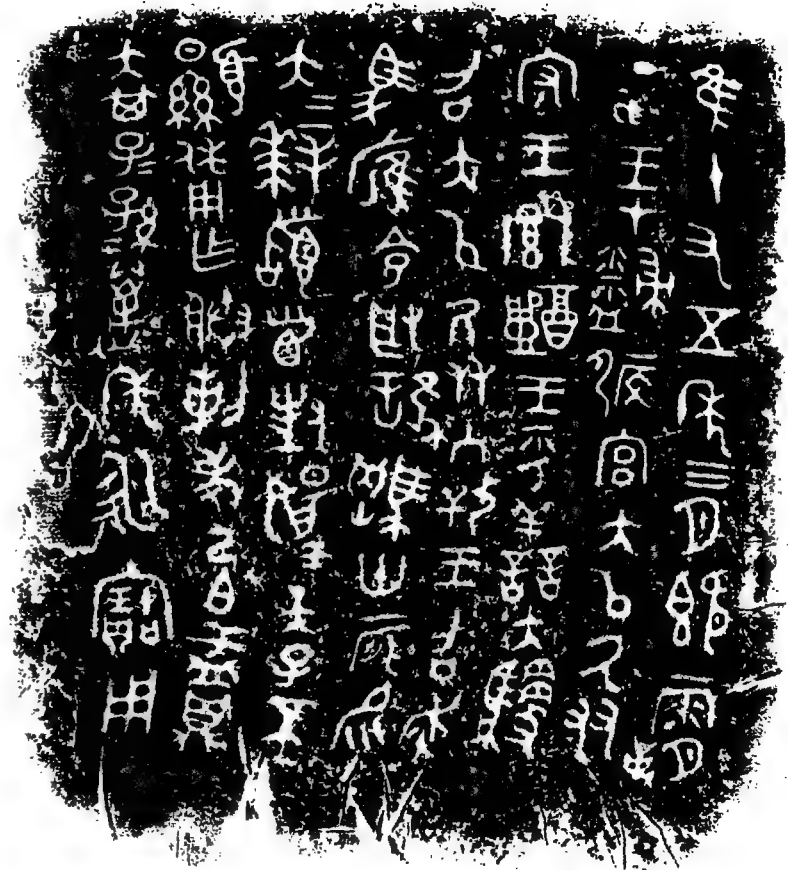 隹十又五年三月既霸丁
亥王才𥻦侲宮大以氒友
守王鄉醴王乎善大騕
召大以氒友入攼王召走
馬雁令取誰𩢍卅二匹易
大拜𩒨首對揚天子不
顯休用乍朕剌考己白盂鼎
大其子子孫孫萬年永寶用